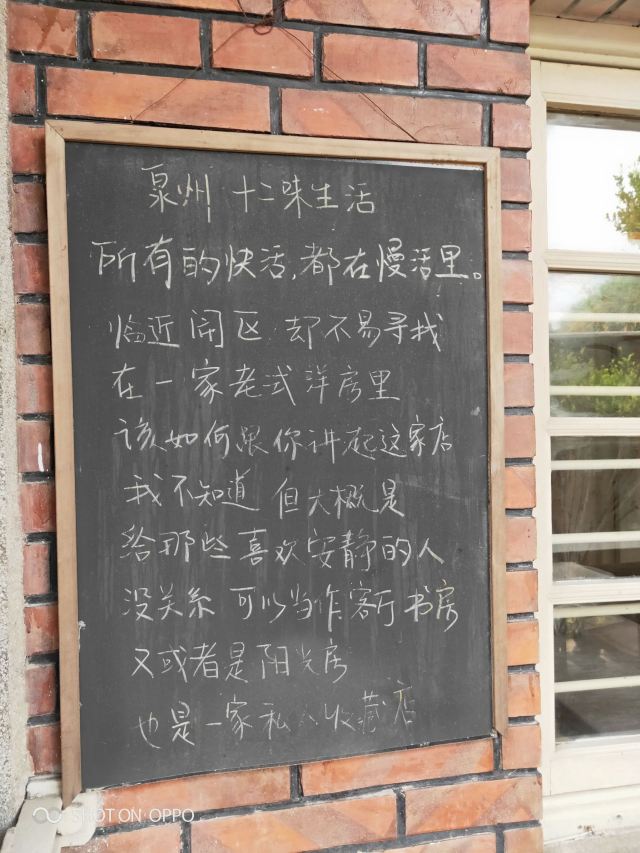 泉州 十二味生活
所有的快活,都在慢活里。
临近闹区 却不易寻找
在一家老式洋房里
该如何跟你讲起这家店
我不知道 但大概是
给那些喜欢安静的人
没关系 可以当作客厅 书房
又或者是阳光房
也是一家私人收藏店
SHOT ON OPPO